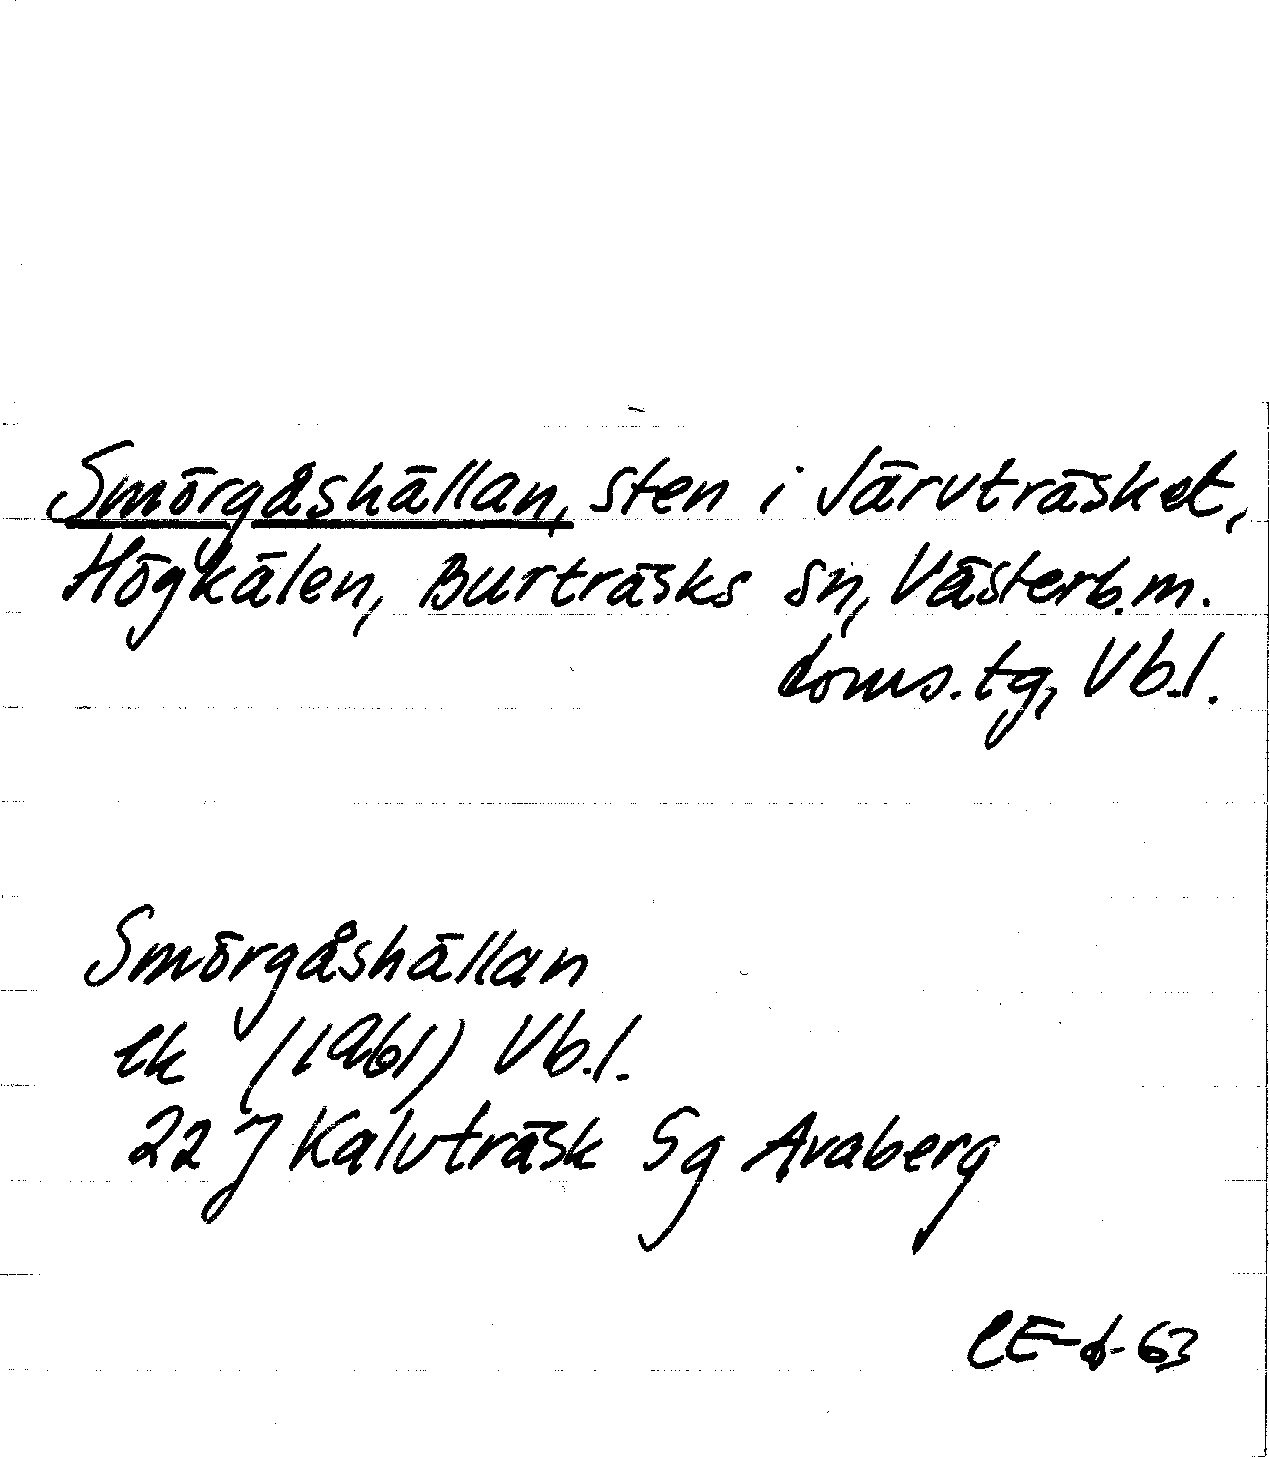 Smörgåshällan, sten i Järvträsket,
Högkälen, Burträsks sn, Västerb.m.
doms.tg, Vb.l.
Smörgåshällan
ek (1961) Vb.l.
22 J Kalvträsk 5g Avaberg